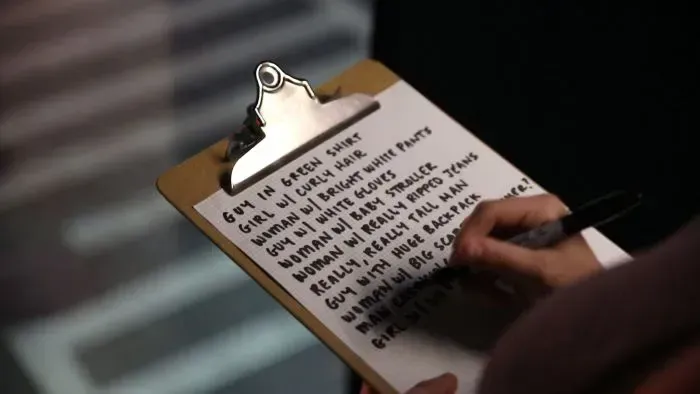 GUY IN GREEN SHIRT
GIRL W/ CURLY HAIR
WOMAN W/ BRIGHT WHITE PANTS
GUY W/ WHITE GLOVES
WOMAN W/ BABY STROLLER
WOMAN W/ REALLY RIPPED JEANS
REALLY, REALLY TALL MAN
GUY WITH HUGE BACKPACK
WOMAN W/ BIG
MAN
GIRL W/